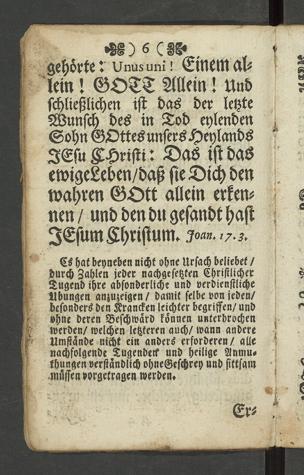 ) 6 (
gehörte: Unus uni! Einem al-
lein! GOTT Allein! Und
schließlichen ist das der letzte
Wunsch des in Tod eylenden
Sohn GOttes unsers Heylands
JEsu CHristi: Das ist das
ewige Leben/ daß sie Dich den
wahren GOtt allein erken-
nen / und den du gesandt hast
JEsum Christum. Joan. 17. 3.
Es hat beyneben nicht ohne Ursach beliebet/
durch Zahlen jeder nachgesetzten Christlicher
Tugend ihre absonderliche und verdienstliche
Ubungen anzuzeigen/ damit selbe von jeden/
besonders den Krancken leichter begriffen/ und
ohne deren Beschwärd können unterbrochen
werden/ welchen letzteren auch/ wann andere
Umstände nicht ein anders erforderen/ alle
nachfolgende Tugenden und heilige Anmu-
thungen verständlich ohne Geschrey und sittsam
müssen vorgetragen werden.
Er-